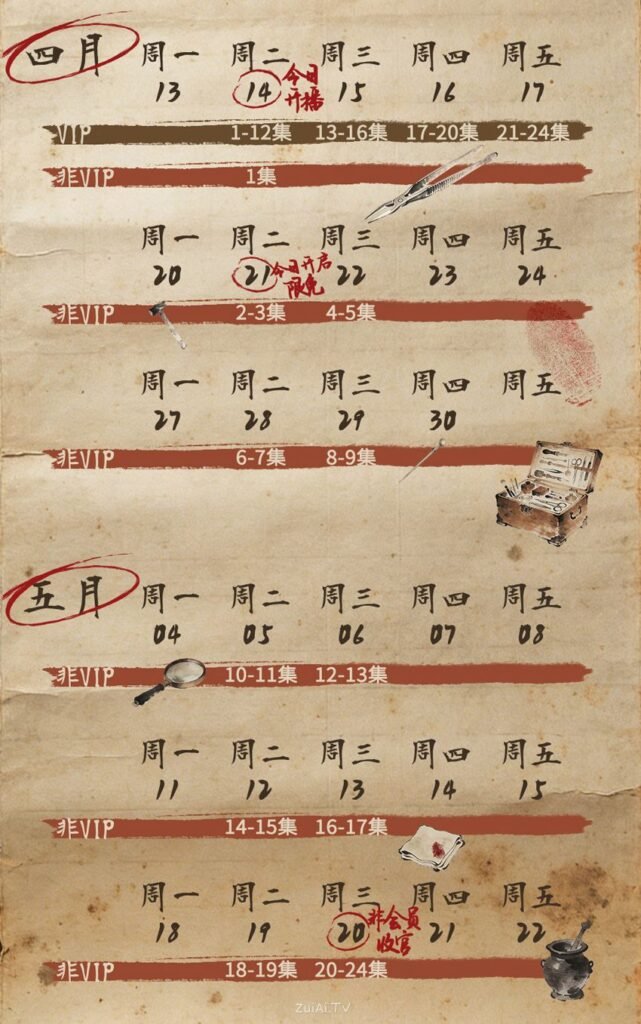 四月 周一 周二 周三 周四 周五
13 14 今日开播 15 16 17
VIP 1-12集 13-16集 17-20集 21-24集
非VIP 1集
周一 周二 周三 周四 周五
20 21 今日开启限免 22 23 24
非VIP 2-3集 4-5集
周一 周二 周三 周四 周五
27 28 29 30
非VIP 6-7集 8-9集
五月 周一 周二 周三 周四 周五
04 05 06 07 08
非VIP 10-11集 12-13集
周一 周二 周三 周四 周五
11 12 13 14 15
非VIP 14-15集 16-17集
周一 周二 周三 周四 周五
18 19 20 非会员收官 21 22
非VIP 18-19集 20-24集
ZuiAi.TV